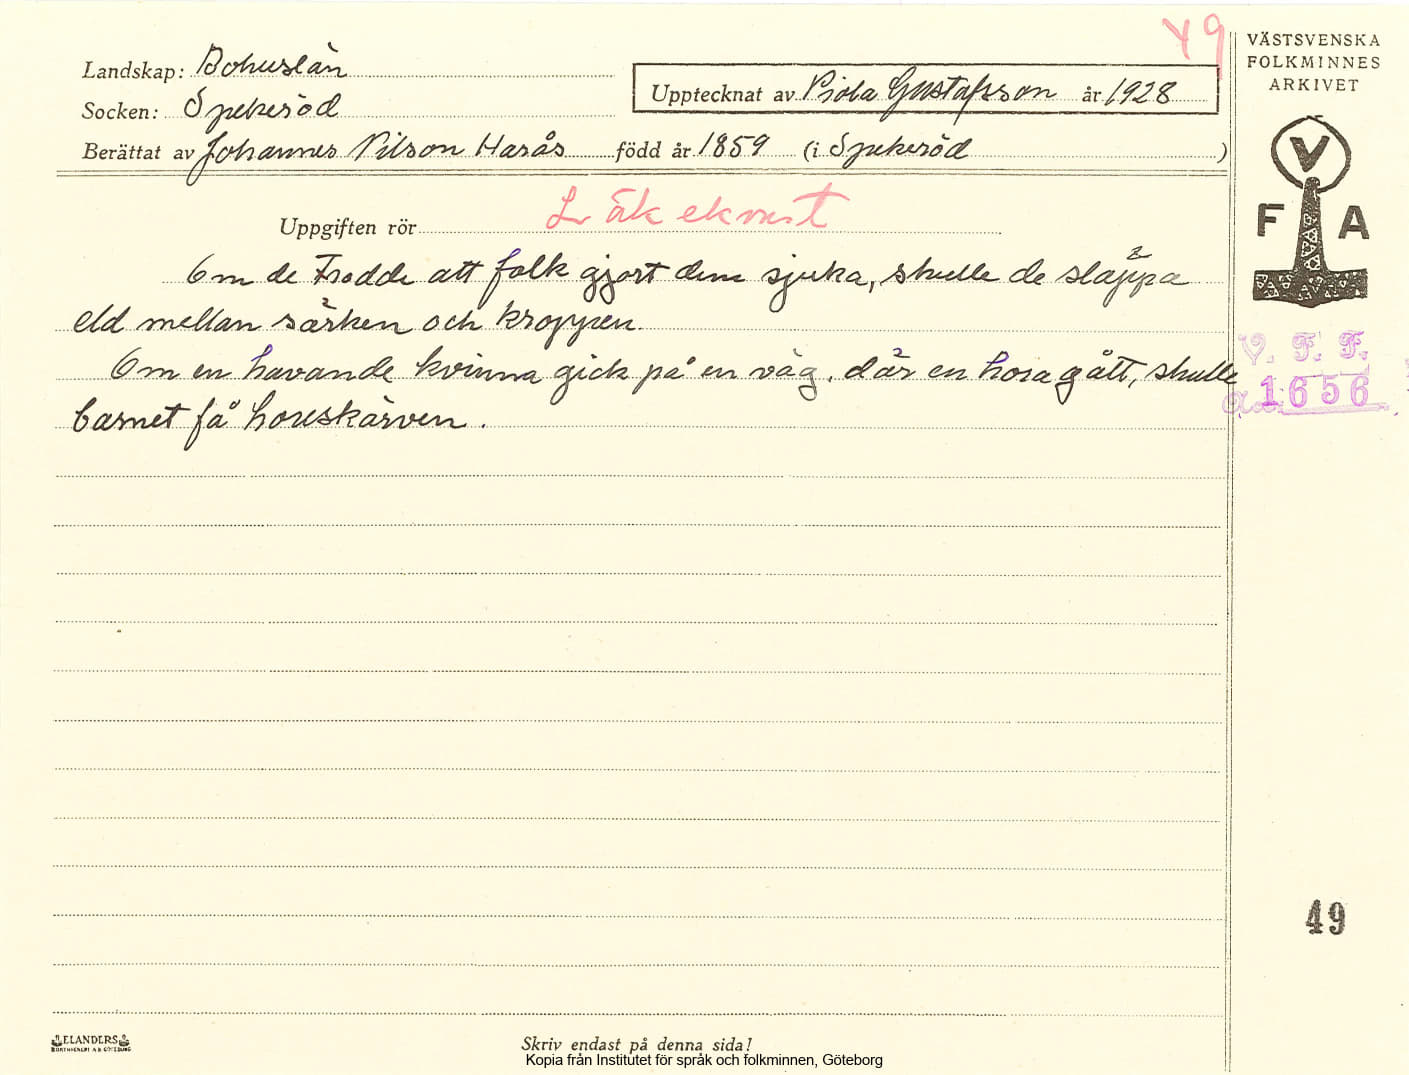 49
VÄSTSVENSKA
FOLKMINNES
ARKIVET
Landskap: Bohuslän
Upptecknat av Viola Gustafsson år 1928
Socken: Spekeröd
Berättat av Johannes Nilson Harås född år 1859 (i Spekeröd)
V
F A
Uppgiften rör Läkekonst
Om de trodde att folk gjort dem sjuka, skulle de släppa
eld mellan särken och kroppen.
Om en havande kvinna gick på en väg, där en hora gått, skulle
barnet få horeskärven.
V. F. F.
1656
49
ELANDERS
BOKTRYCKERI A B GÖTEBORG
Skriv endast på denna sida!
Kopia från Institutet för språk och folkminnen, Göteborg